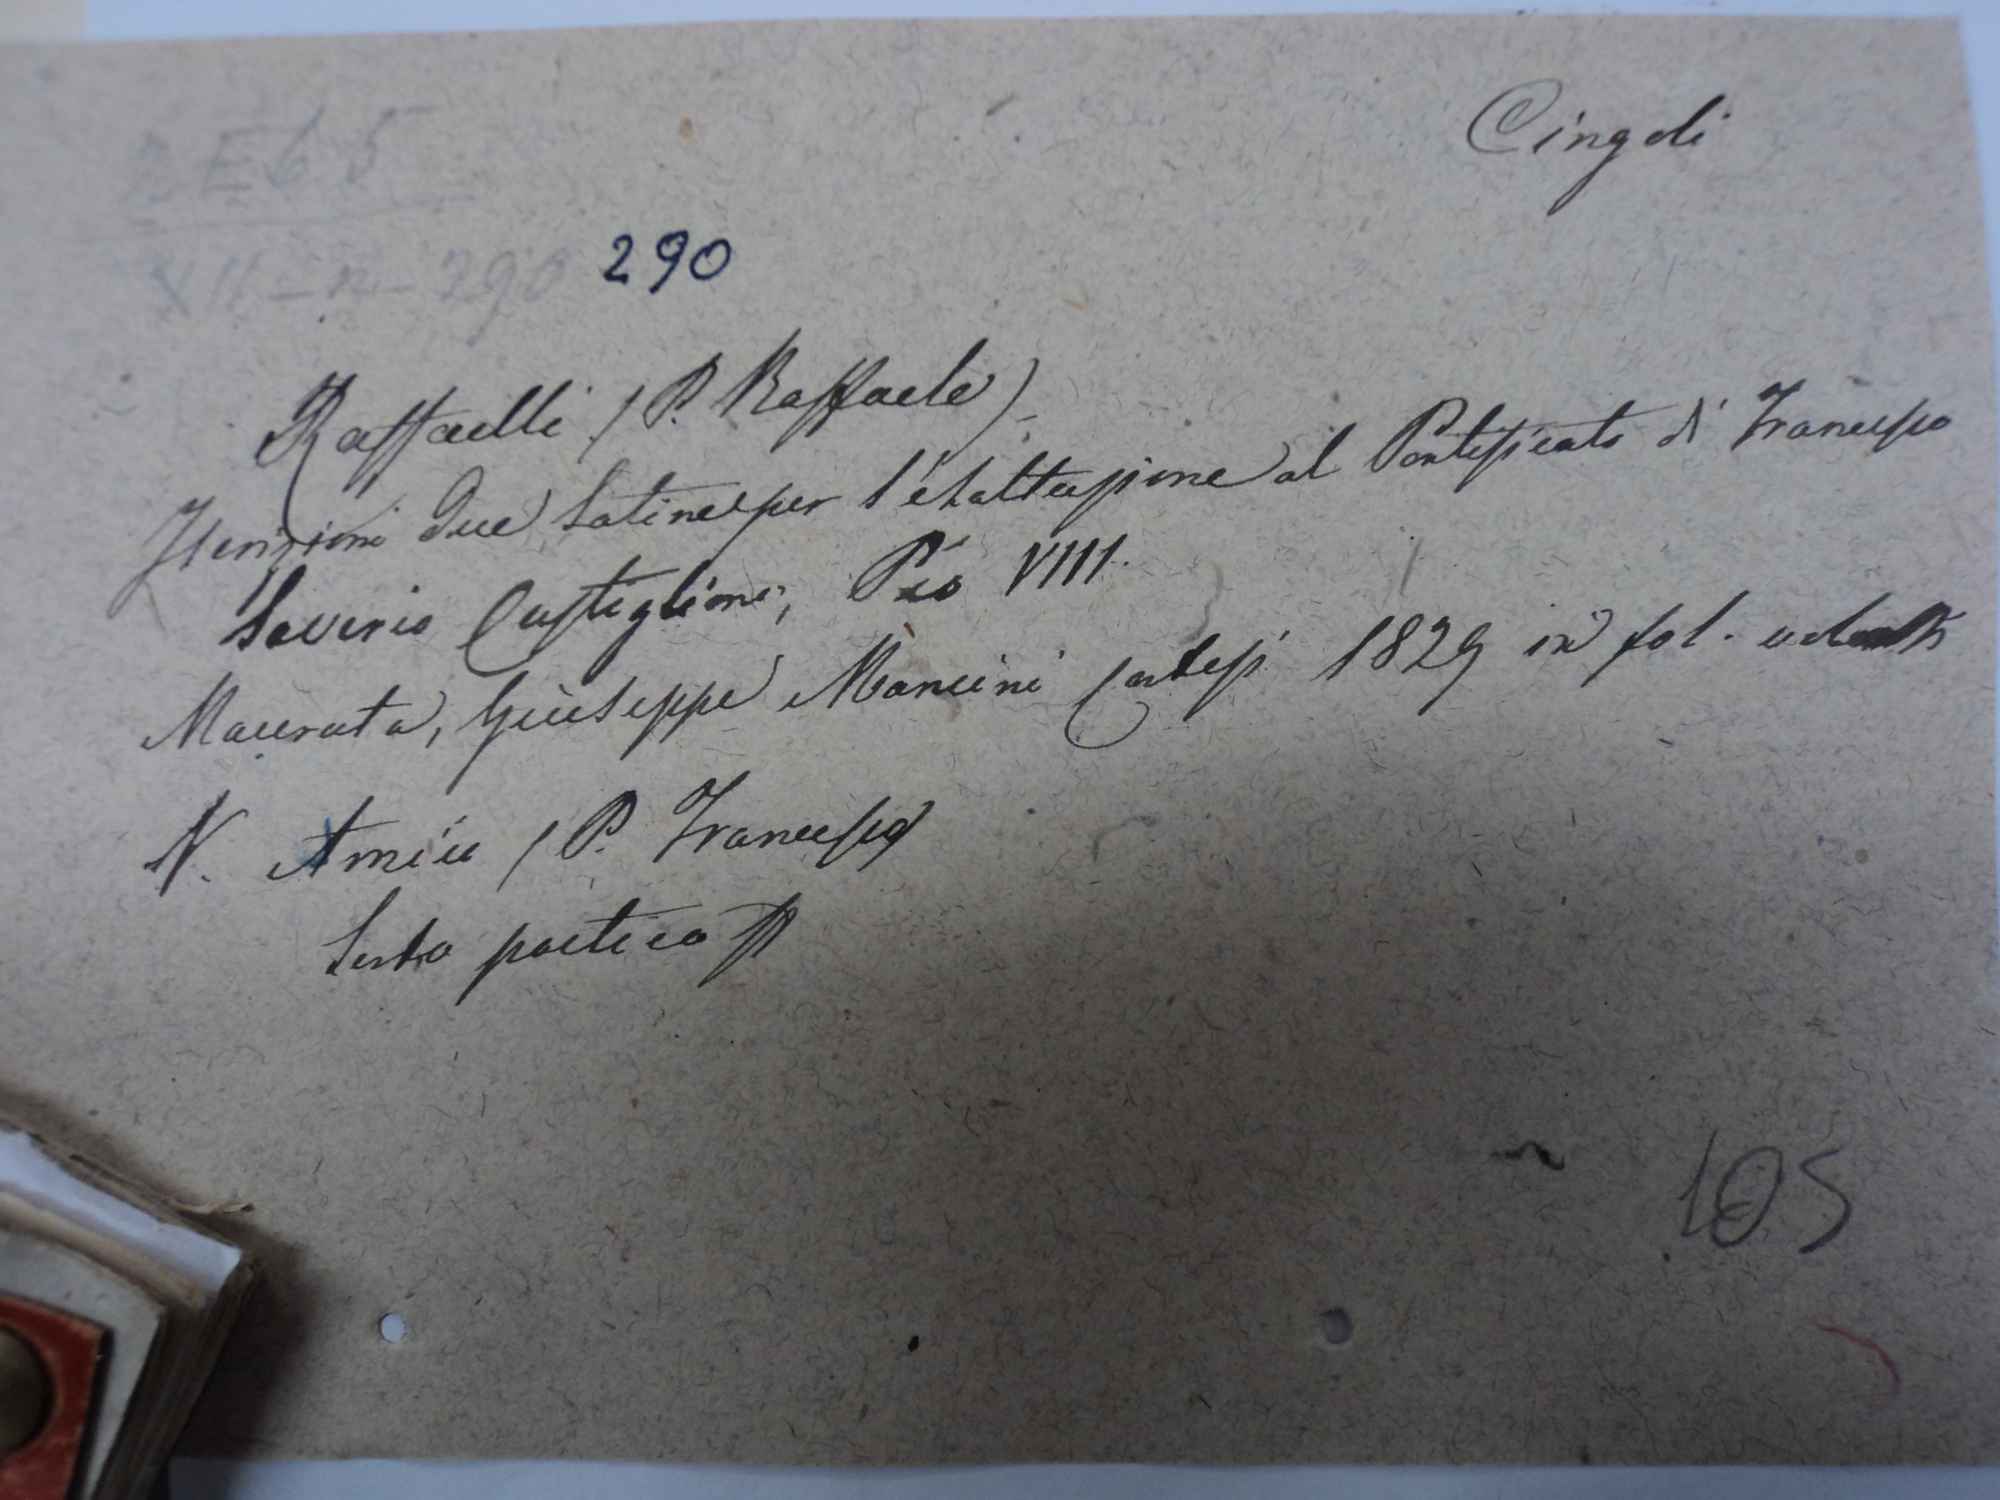 Cingoli
2 E 6 5
XII - n - 290 290
Raffaelli (P. Raffaele)
Iscrizioni due latine per l'esaltazione al Pontificato di Francesco
Saverio Castiglioni, Pio VIII.
Macerata, Giuseppe Mancini Cortesi 1829 in fol.
N. Amici (P. Francesco)
Serto poetico
105